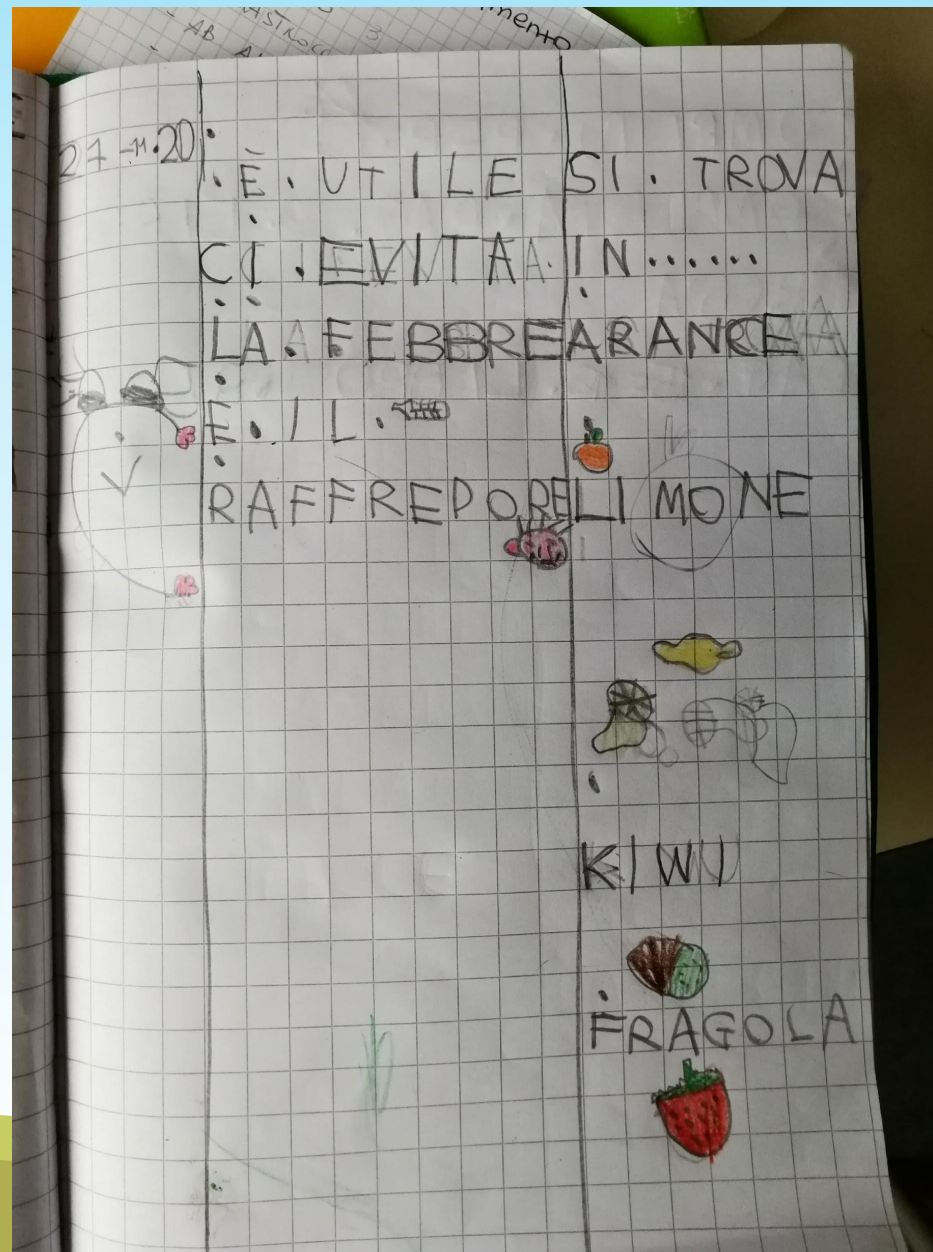 27-11.20
.È. UTILE
CI.EVITA
LA.FEBBRE
E.IL.
RAFFREDORE
SI. TROVA
IN......
ARANCE
LIMONE
KIWI
FRAGOLA